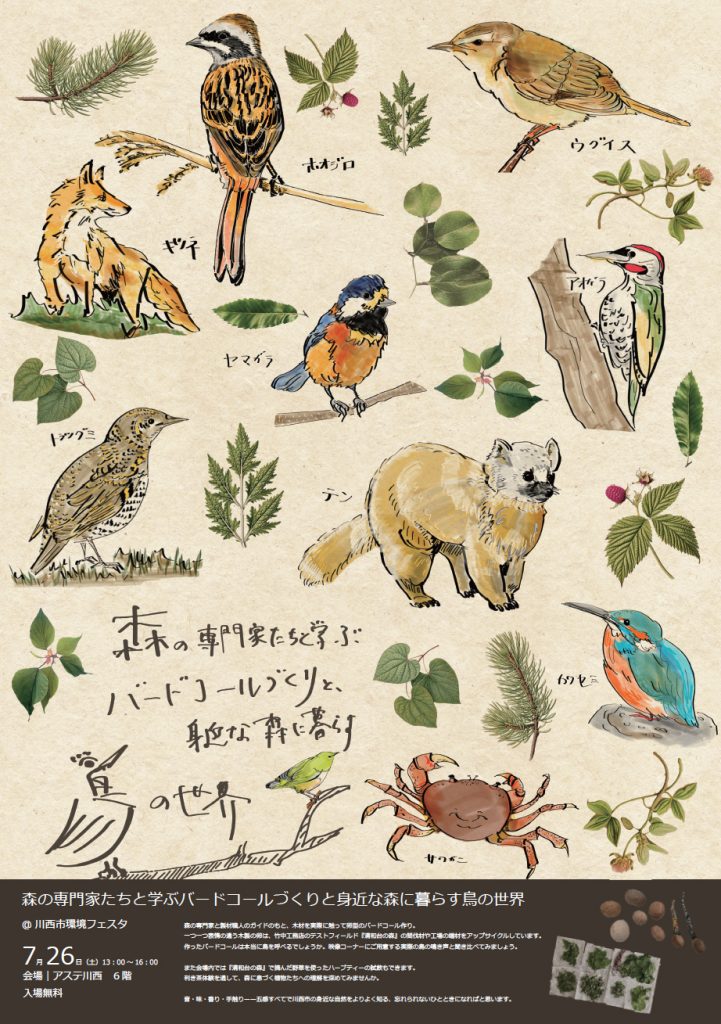 ホオジロ
ウグイス
キツネ
アオゲラ
ヤマガラ
トラツグミ
テン
カワセミ
サワガニ
森の専門家たちと学ぶ
バードコールづくりと、
身近な森に暮らす
鳥の世界
森の専門家たちと学ぶバードコールづくりと身近な森に暮らす鳥の世界
@ 川西市環境フェスタ
7月26日（土）13：00～16：00
会場｜アステ川西 6階
入場無料
森の専門家と製材職人のガイドのもと、木材を実際に触って卵型のバードコール作り。
一つ一つ表情の違う木製の卵は、竹中工務店のテストフィールド『清和台の森』の間伐材や工場の端材をアップサイクルしています。
作ったバードコールは本当に鳥を呼べるでしょうか。映像コーナーにご用意する実際の鳥の鳴き声と聞き比べてみましょう。
また会場内では『清和台の森』で摘んだ野草を使ったハーブティーの試飲もできます。
利き茶体験を通して、森に息づく植物たちへの理解を深めてみませんか。
音・味・香り・手触り――五感すべてで川西市の身近な自然をよりよく知る、忘れられないひとときになればと思います。